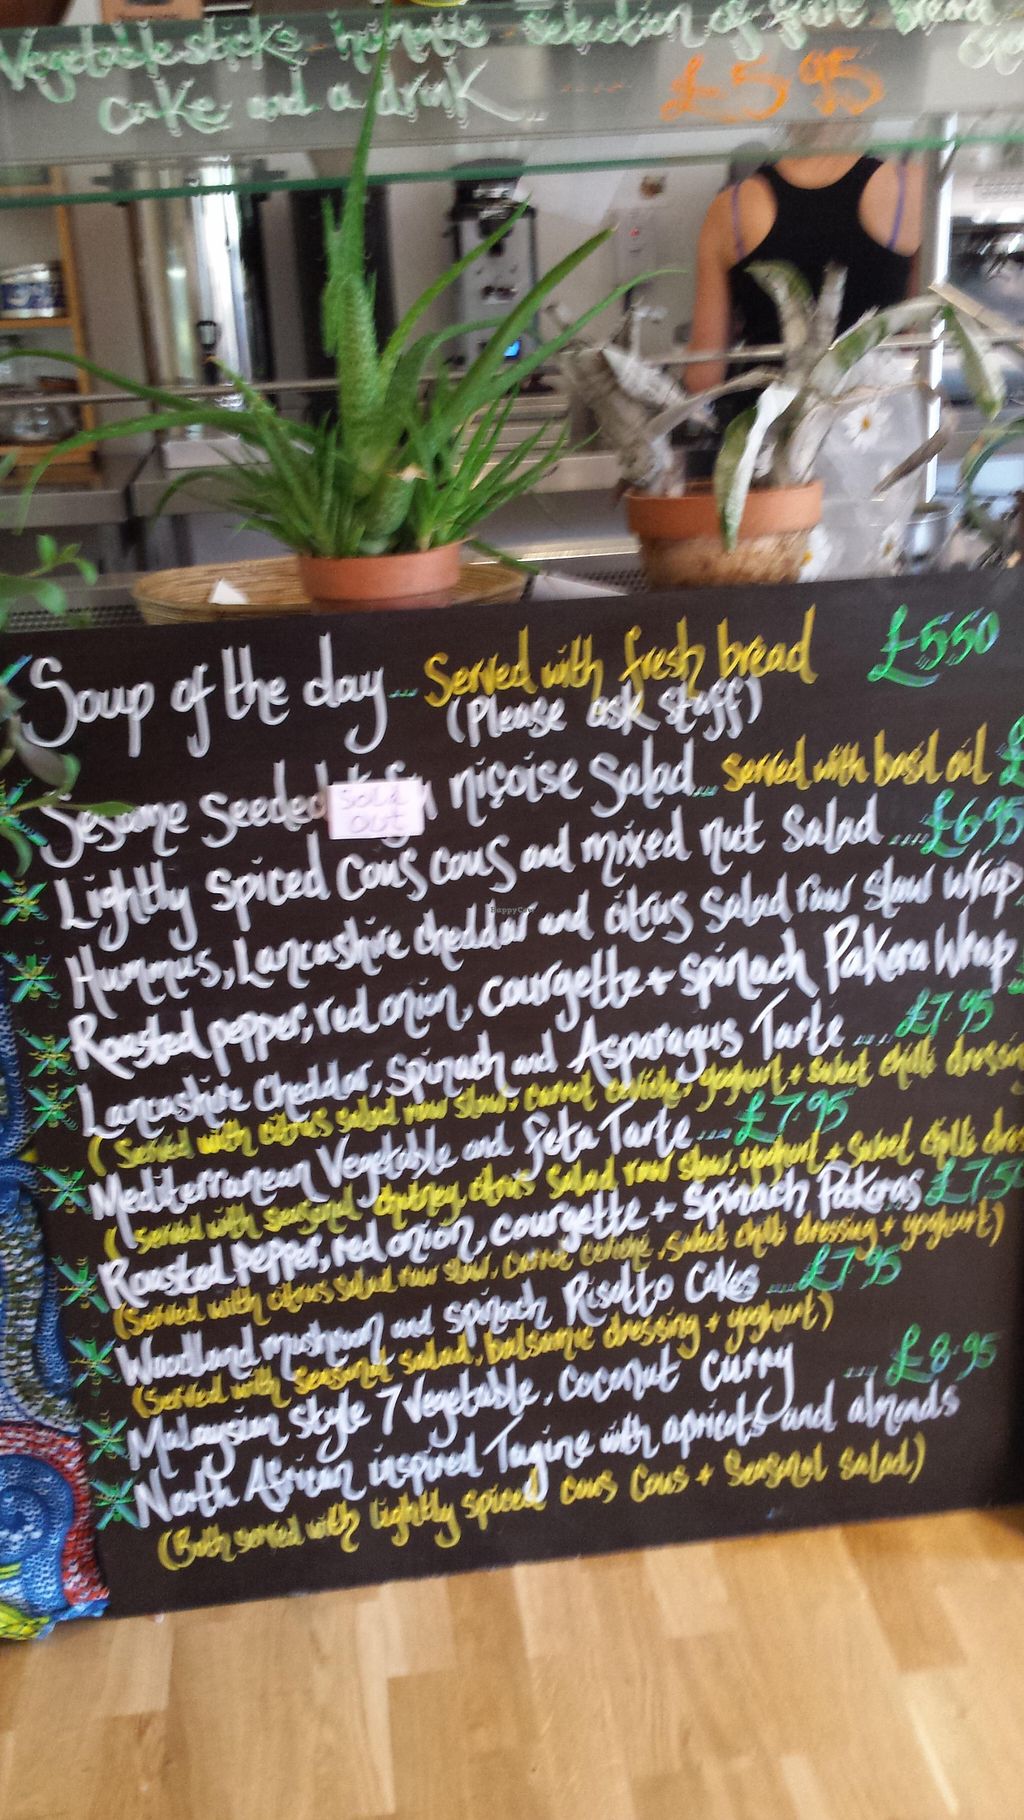 Vegetable sticks, humous selection of fruit bread
cake and a drink ..... £5.95
Soup of the day... Served with fresh bread £5.50
(Please ask staff)
Sesame Seeded tofu niçoise Salad... served with basil oil £
Sold
Out
Lightly spiced Cous cous and mixed nut Salad ....£6.95
Hummus, Lancashire cheddar and citrus salad raw slaw wrap
Roasted pepper, red onion, courgette + spinach Pakora Wrap
Lancashire Cheddar, Spinach and Asparagus Tarte ....£7.95
(Served with citrus salad raw slaw, carrot ceriche, yoghurt + sweet chilli dressing
Mediterranean Vegetable and feta Tarte ... £7.95
(Served with seasonal chutney, citrus salad raw slaw, yoghurt + sweet chilli dres
Roasted Pepper, red onion, courgette + spinach Pakoras £7.50
(Served with citrus salad raw slaw, carrot ceriche, sweet chilli dressing + yoghurt)
Woodland mushroom and spinach Risotto Cakes .....£7.95
(Served with seasonal salad, balsamic dressing + yoghurt)
Malaysian style 7 Vegetable, coconut curry .... £8.95
North African inspired Tagine with apricots and almonds
(Both served with lightly spiced cous cous + seasonal salad)
HappyCow